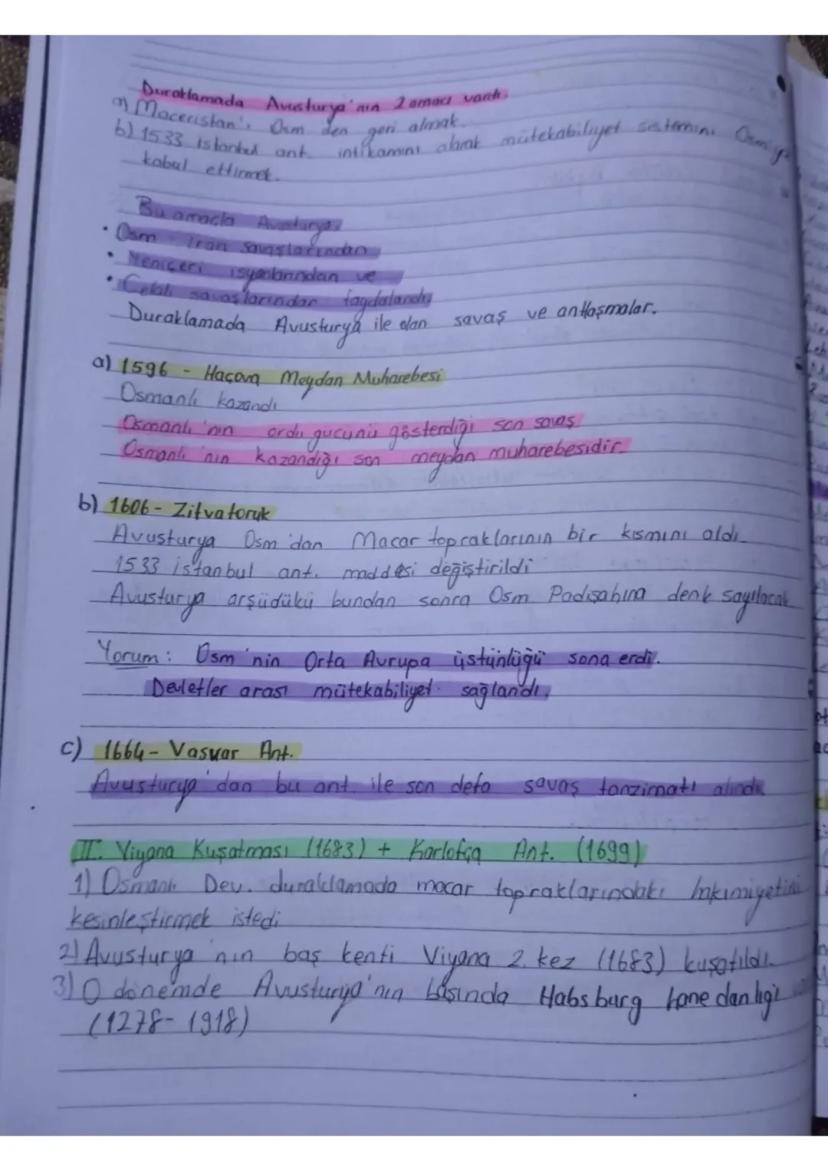 Duraklamada Avusturya'nın 2 amacı vardı.
a) Macaristan'ı Osm den geri almak.
b) 1533 İstanbul ant. intikamını alarak mütekabiliyet sistemini Osm'ye
kabul ettirmek.
Bu amaçla Avusturya;
• Osm - İran savaşlarından
• Yeniçeri isyanlarından ve
• Celali savaşlarından faydalandı
Duraklamada Avusturya ile olan savaş ve antlaşmalar.
a) 1596 - Haçova Meydan Muharebesi
Osmanlı kazandı
Osmanlı'nın ordu gücünü gösterdiği son savaş
Osmanlı'nın kazandığı son meydan muharebesidir.
b) 1606 - Zitvatoruk
Avusturya Osm'dan Macar topraklarının bir kısmını aldı.
1533 istanbul ant. maddesi değiştirildi
Avusturya arşüdükü bundan sonra Osm Padişahına denk sayılacak
Yorum: Osm'nin Orta Avrupa üstünlüğü sona erdi.
Devletler arası mütekabiliyet sağlandı.
c) 1664 - Vasvar Ant.
Avusturya'dan bu ant. ile son defa savaş tanzimatı alındı
II. Viyana Kuşatması (1683) + Karlofça Ant. (1699)
1) Osmanlı Dev. duraklamada macar topraklarındaki hakimiyetini
kesinleştirmek istedi
2) Avusturya'nın baş kenti Viyana 2. kez (1683) kuşatıldı.
3) O dönemde Avusturya'nın başında Habsburg hanedanlığı
(1278 - 1918)